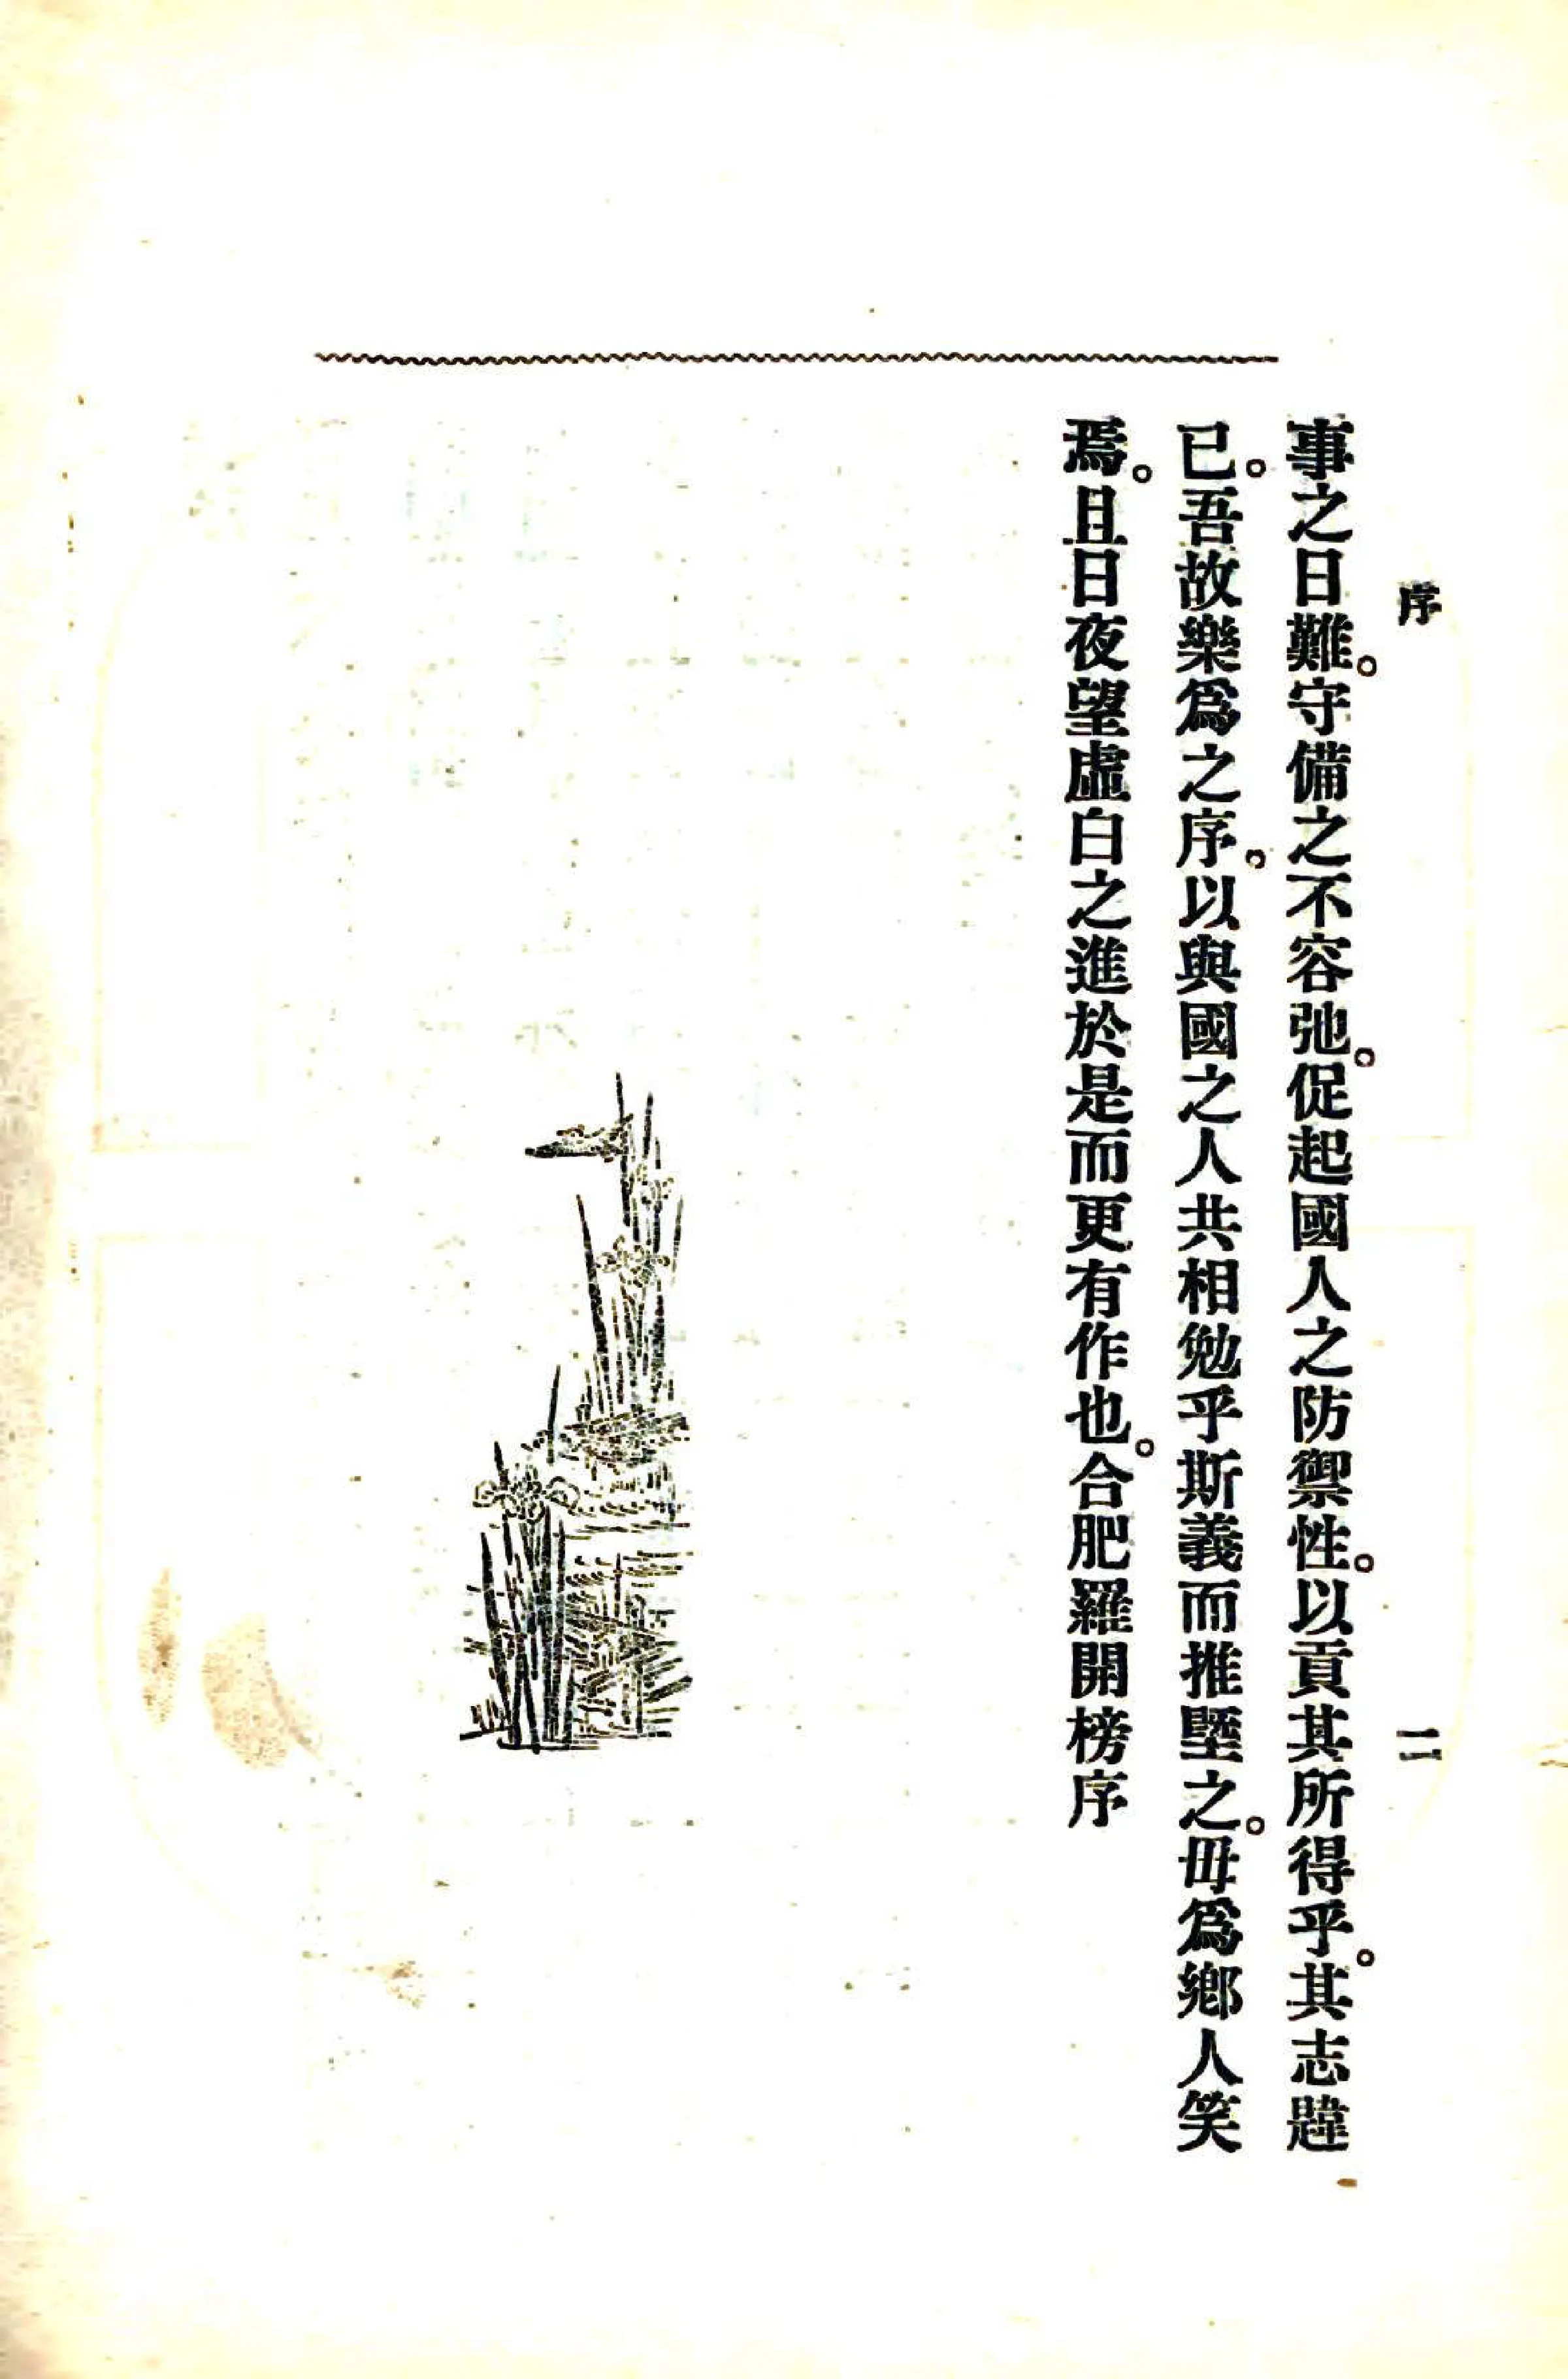 序
二
事之日難。守備之不容弛。促起國人之防禦性。以貢其所得乎。其志韙
已。吾故樂爲之序。以與國之人共相勉乎斯義而推塈之。毋爲鄕人笑
焉。且日夜望虛白之進於是而更有作也。合肥羅開榜序